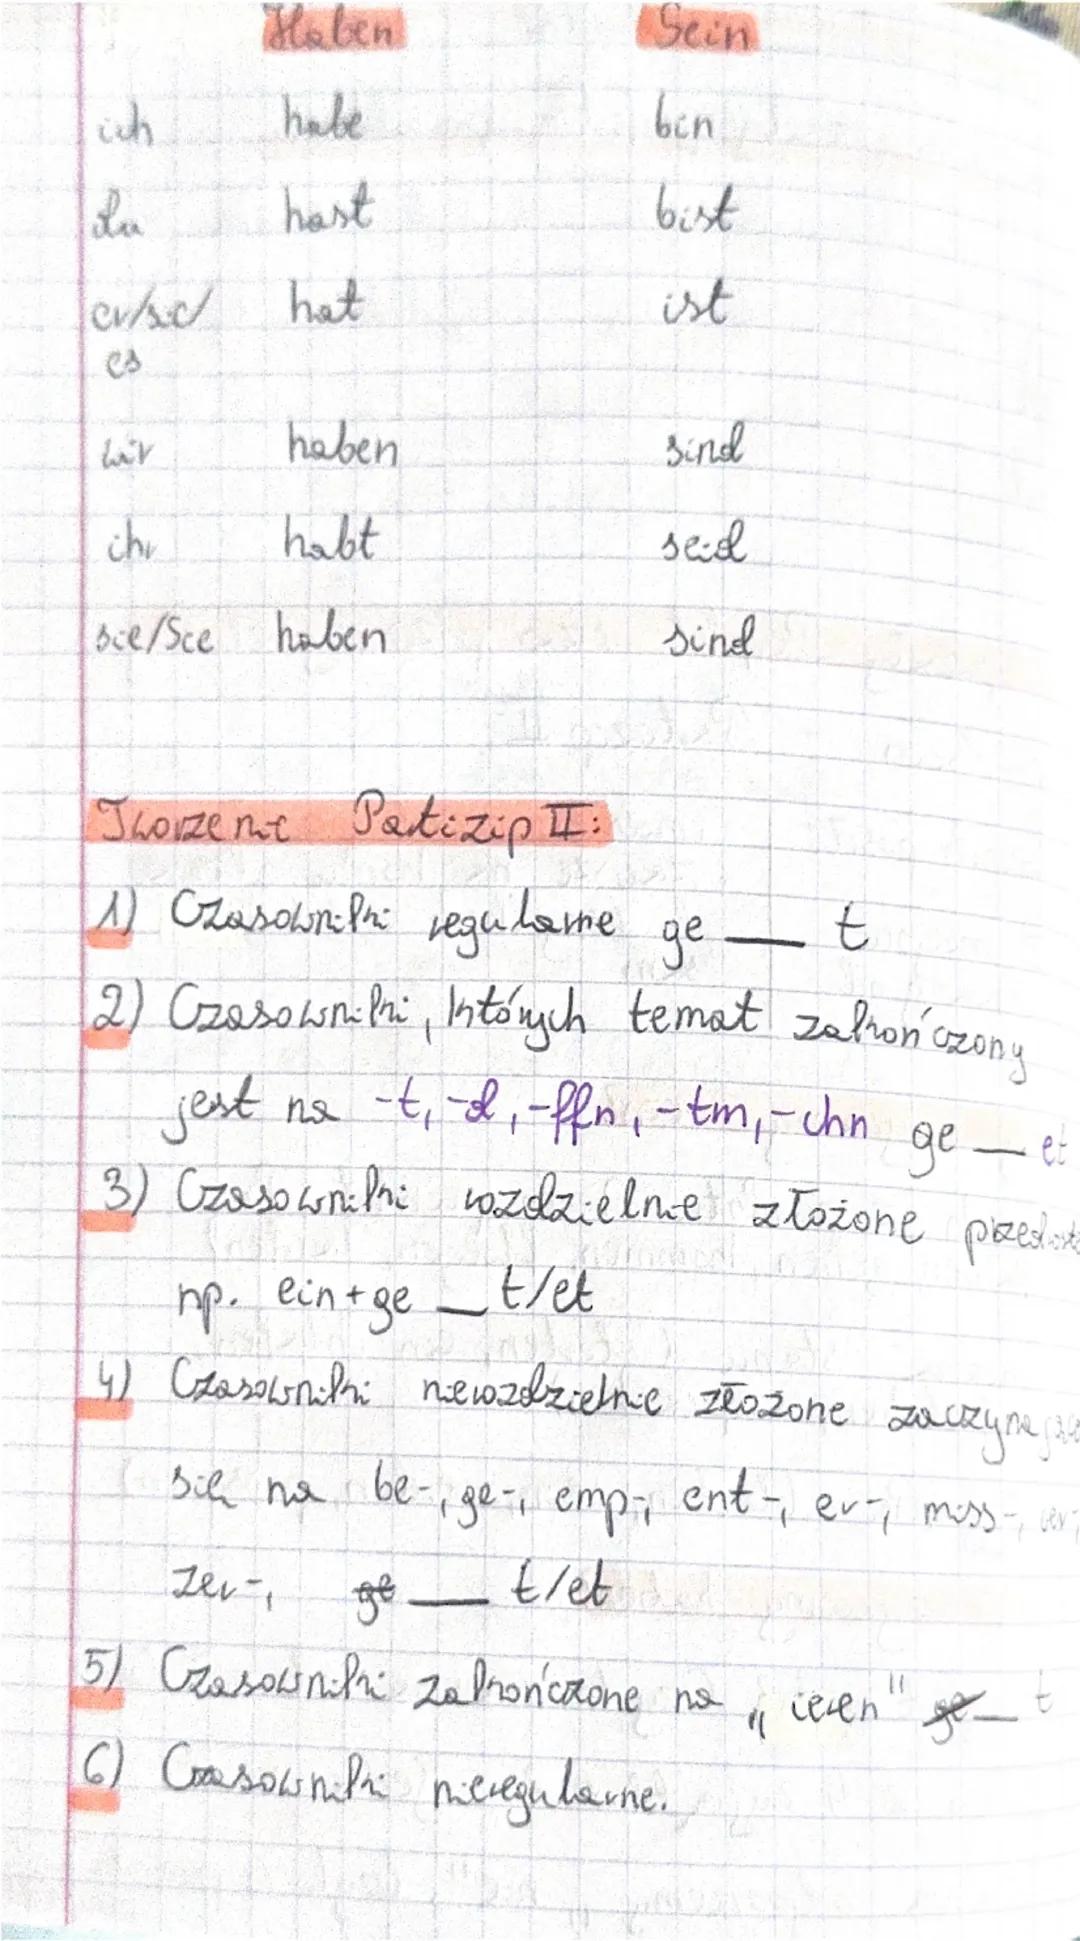 Haben Sein
ich habe bin
du hast bist
er/sie/ hat ist
es
wir haben sind
ihr habt seid
sie/Sie haben sind
Tworzenie Partizip II:
1) Czasowniki regularne ge __ t
2) Czasowniki, których temat zakończony
jest na -t, -d, -ffn, -tm, -chn ge __ et
3) Czasowniki rozdzielnie złożone
np. ein+ge __ t/et
4) Czasowniki nierozdzielnie złożone zaczynające
się na be-, ge-, emp-, ent-, er-, miss-, ver-,
zer-, ge __ t/et
5) Czasowniki zakończone na „ieren" ge __ t
6) Czasowniki nieregularne.